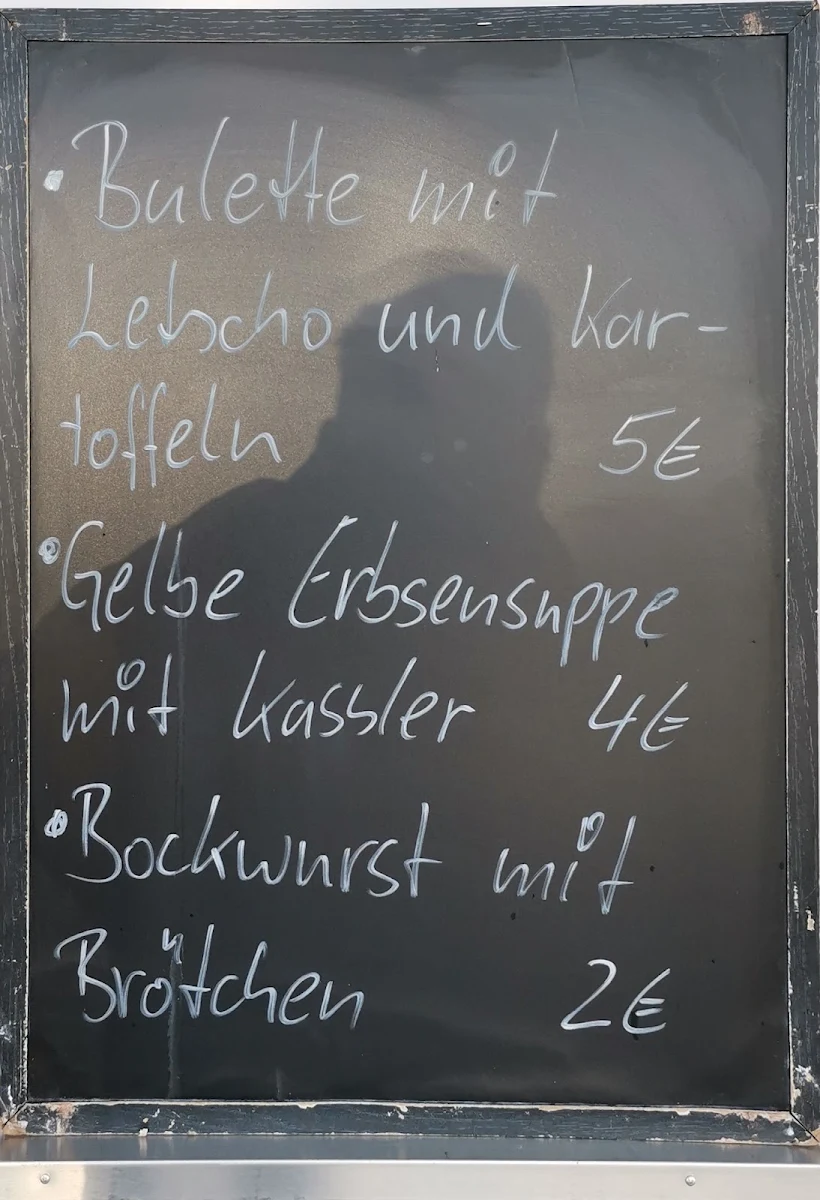 • Bulette mit
Letscho und Kar-
toffeln 5€
• Gelbe Erbsensuppe
mit Kassler 4€
• Bockwurst mit
Brötchen 2€